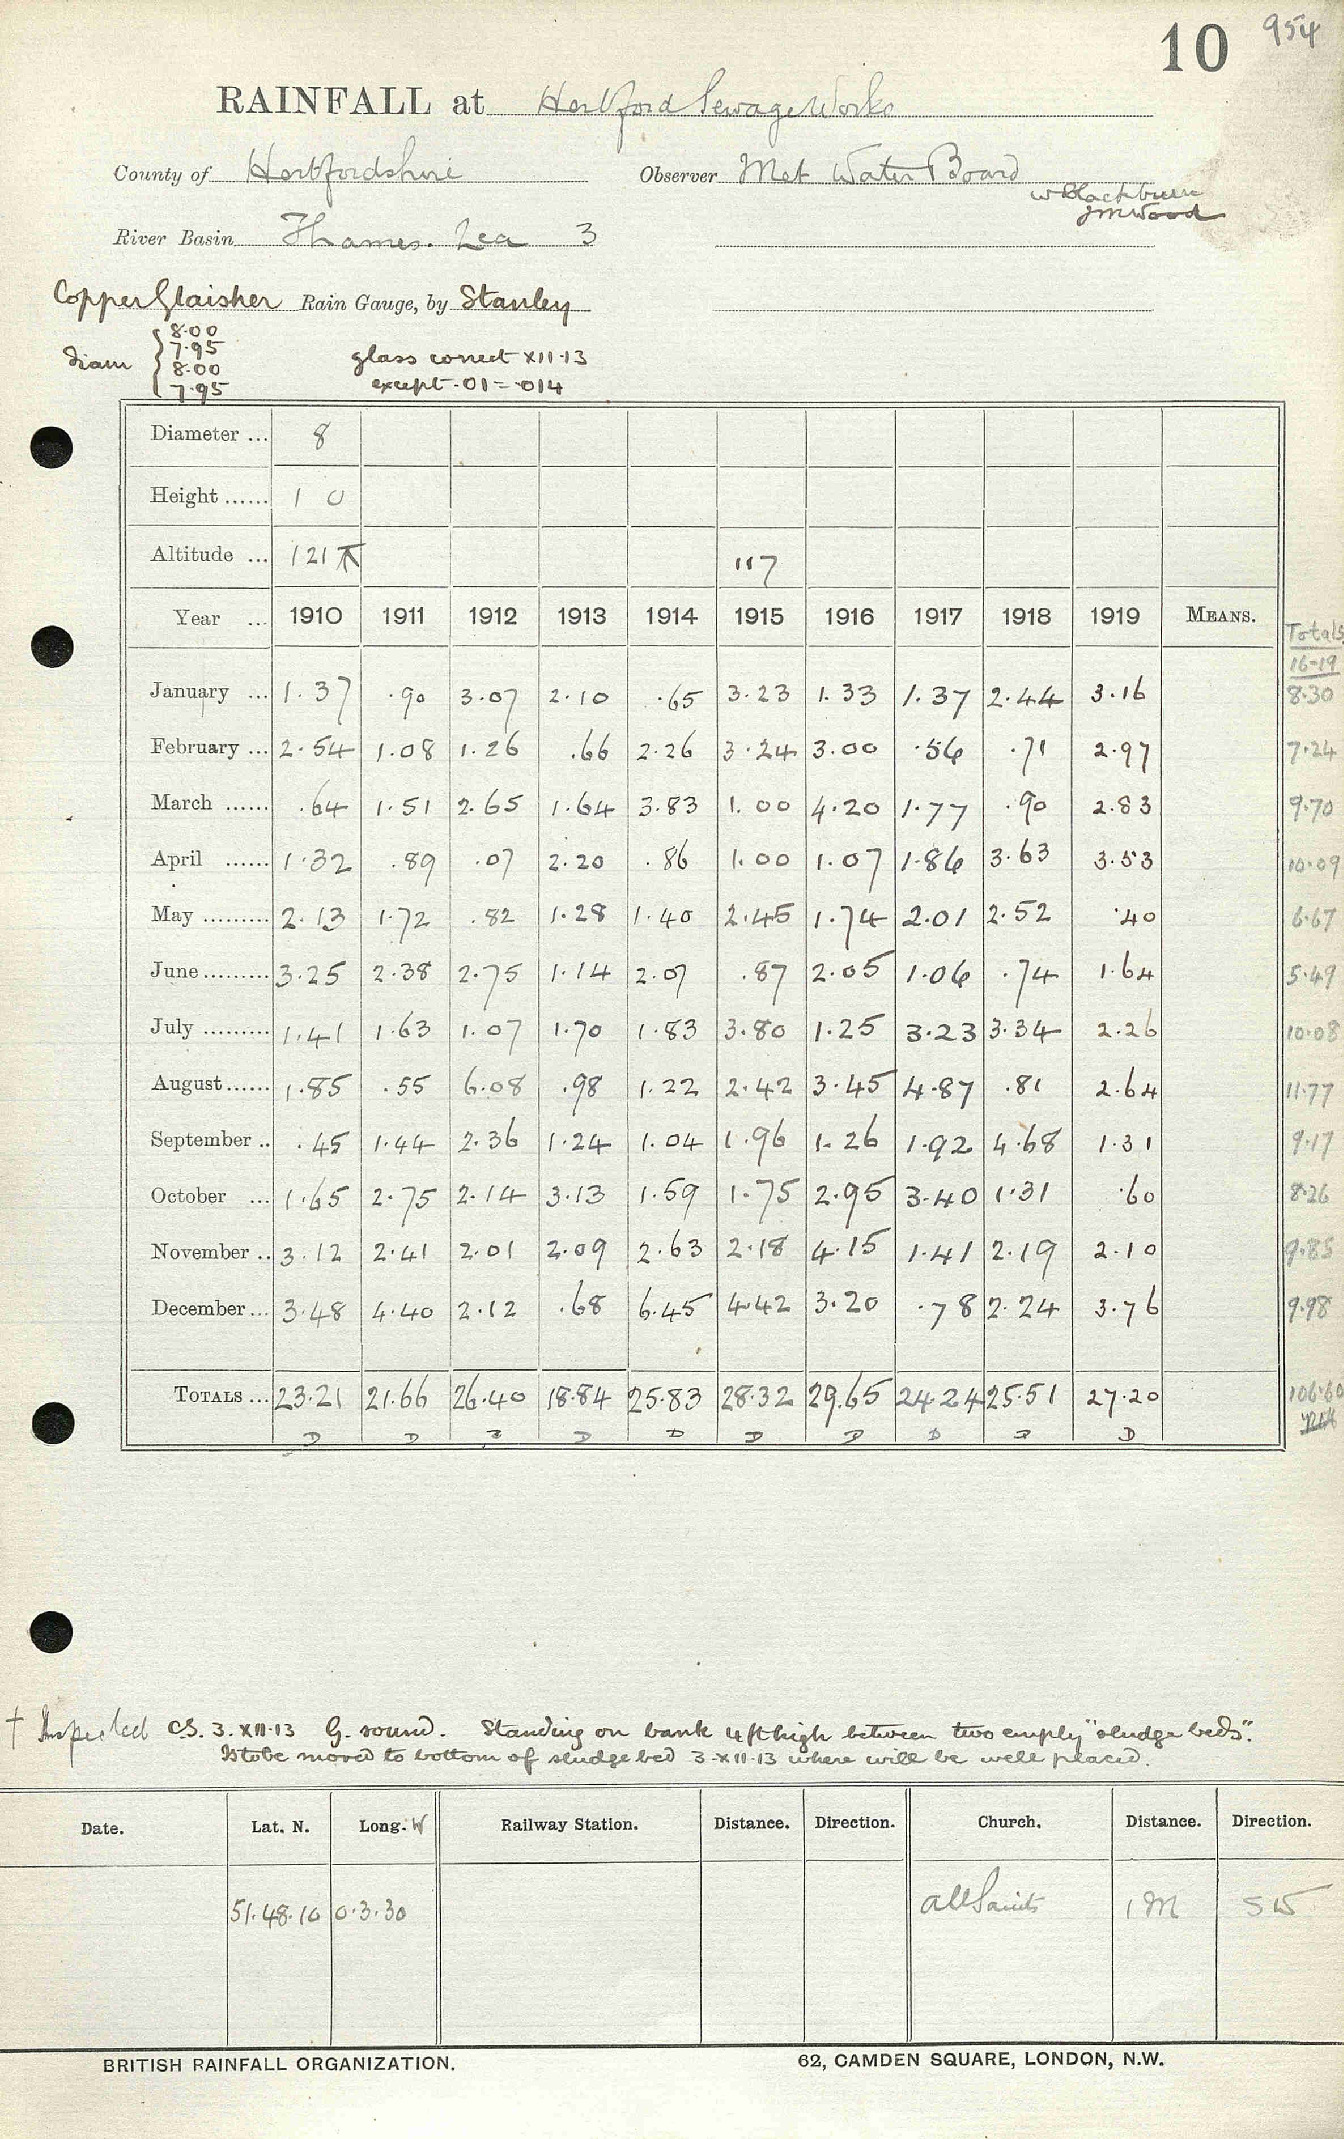 10 954
RAINFALL at Hertford Sewage Works
County of Hertfordshire Observer Met Water Board
W Blackburn
J M Wood
River Basin Thames. Lea 3
Copper Glaisher Rain Gauge, by Stanley
Diam 8.00 7.95 8.00 7.95
glass correct XII.13
except .01 = .014
Diameter ... 8
Height ...... 1 0
Altitude ... 121 117
Year ... 1910 1911 1912 1913 1914 1915 1916 1917 1918 1919 MEANS. Totals 16-19
January ... 1.37 .90 3.07 2.10 .65 3.23 1.33 1.37 2.44 3.16 8.30
February ... 2.54 1.08 1.26 .66 2.26 3.24 3.00 .56 .71 2.97 7.24
March ...... .64 1.51 2.65 1.64 3.83 1.00 4.20 1.77 .90 2.83 9.70
April ...... 1.32 .89 .07 2.20 .86 1.00 1.07 1.86 3.63 3.53 10.09
May ......... 2.13 1.72 .82 1.28 1.40 2.45 1.74 2.01 2.52 .40 6.67
June ......... 3.25 2.38 2.75 1.14 2.07 .87 2.05 1.06 .74 1.64 5.49
July ......... 1.41 1.63 1.07 1.70 1.83 3.80 1.25 3.23 3.34 2.26 10.08
August ...... 1.85 .55 6.08 .98 1.22 2.42 3.45 4.87 .81 2.64 11.77
September .. .45 1.44 2.36 1.24 1.04 1.96 1.26 1.92 4.68 1.31 9.17
October ... 1.65 2.75 2.14 3.13 1.59 1.75 2.95 3.40 1.31 .60 8.26
November .. 3.12 2.41 2.01 2.09 2.63 2.18 4.15 1.41 2.19 2.10 9.85
December ... 3.48 4.40 2.12 .68 6.45 4.42 3.20 .78 2.24 3.76 9.98
TOTALS ... 23.21 21.66 26.40 18.84 25.83 28.32 29.65 24.24 25.51 27.20 106.60
D D D D D D D D D D
† Inspected CS. 3.XII.13 G. round. Standing on bank 4 ft high between two empty "sludge beds".
Is to be moved to bottom of sludge bed 3-XII-13 where will be well placed.
Date. Lat. N. Long. W Railway Station. Distance. Direction. Church. Distance. Direction.
51.48.10 0.3.30 All Saints 1 M SW
BRITISH RAINFALL ORGANIZATION. 62, CAMDEN SQUARE, LONDON, N.W.